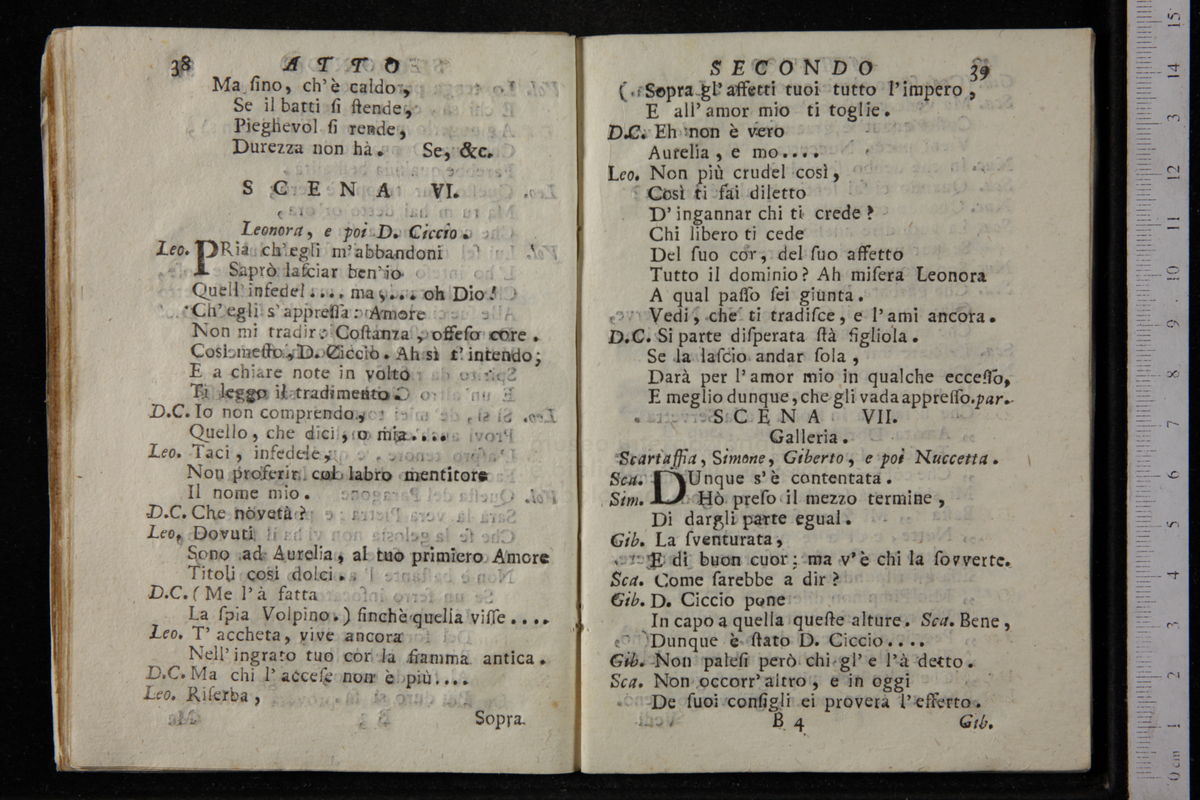 38 ATTO
Ma ſino, ch'è caldo,
Se il batti ſi ſtende,
Pieghevol ſi rende,
Durezza non hà. Se, &c.
SCENA VI.
Leonora, e poi D. Ciccio.
Leo. PRia ch'egli m'abbandoni
Saprò laſciar ben'io
Quell'infedel .... ma,... oh Dio!
Ch'egli s'appreſſa: Amore
Non mi tradir: Coſtanza, offeſo core.
Così meſto, D. Ciccio. Ah sì t'intendo;
E a chiare note in volto
Ti leggo il tradimento.
D.C. Io non comprendo,
Quello, che dici, o mia....
Leo. Taci, infedele,
Non proferir col labro mentitore
Il nome mio.
D.C. Che novetà?
Leo. Dovuti
Sono ad Aurelia, al tuo primiero Amore
Titoli così dolci.
D.C. (Me l'à fatta
La ſpia Volpino.) ſinchè quella viſſe....
Leo. T'accheta, vive ancora
Nell'ingrato tuo cor la fiamma antica.
D.C. Ma chi l'acceſe non è più....
Leo. Riſerba,
Sopra
SECONDO 39
(Sopra gl'affetti tuoi tutto l'impero,
E all'amor mio ti toglie.
D.C. Eh non è vero
Aurelia, e mo....
Leo. Non più crudel così,
Così ti fai diletto
D'ingannar chi ti crede?
Chi libero ti cede
Del ſuo cor, del ſuo affetto
Tutto il dominio? Ah miſera Leonora
A qual paſſo ſei giunta.
Vedi, che ti tradiſce, e l'ami ancora.
D.C. Si parte diſperata ſtà figliola.
Se la laſcio andar ſola,
Darà per l'amor mio in qualche ecceſſo,
E meglio dunque, che gli vada appreſſo. par.
SCENA VII.
Galleria.
Scartaffia, Simone, Giberto, e poi Nuccetta.
Sca. DUnque s'è contentata.
Sim. Hò preſo il mezzo termine,
Di dargli parte egual.
Gib. La ſventurata,
E di buon cuor; ma v'è chi la ſovverte.
Sca. Come ſarebbe a dir?
Gib. D. Ciccio pone
In capo a quella queſte alture. Sca. Bene,
Dunque è ſtato D. Ciccio....
Gib. Non paleſi però chi gl'e l'à detto.
Sca. Non occorr'altro, e in oggi
De ſuoi conſigli ei proverà l'effetto.
B 4 Gib.